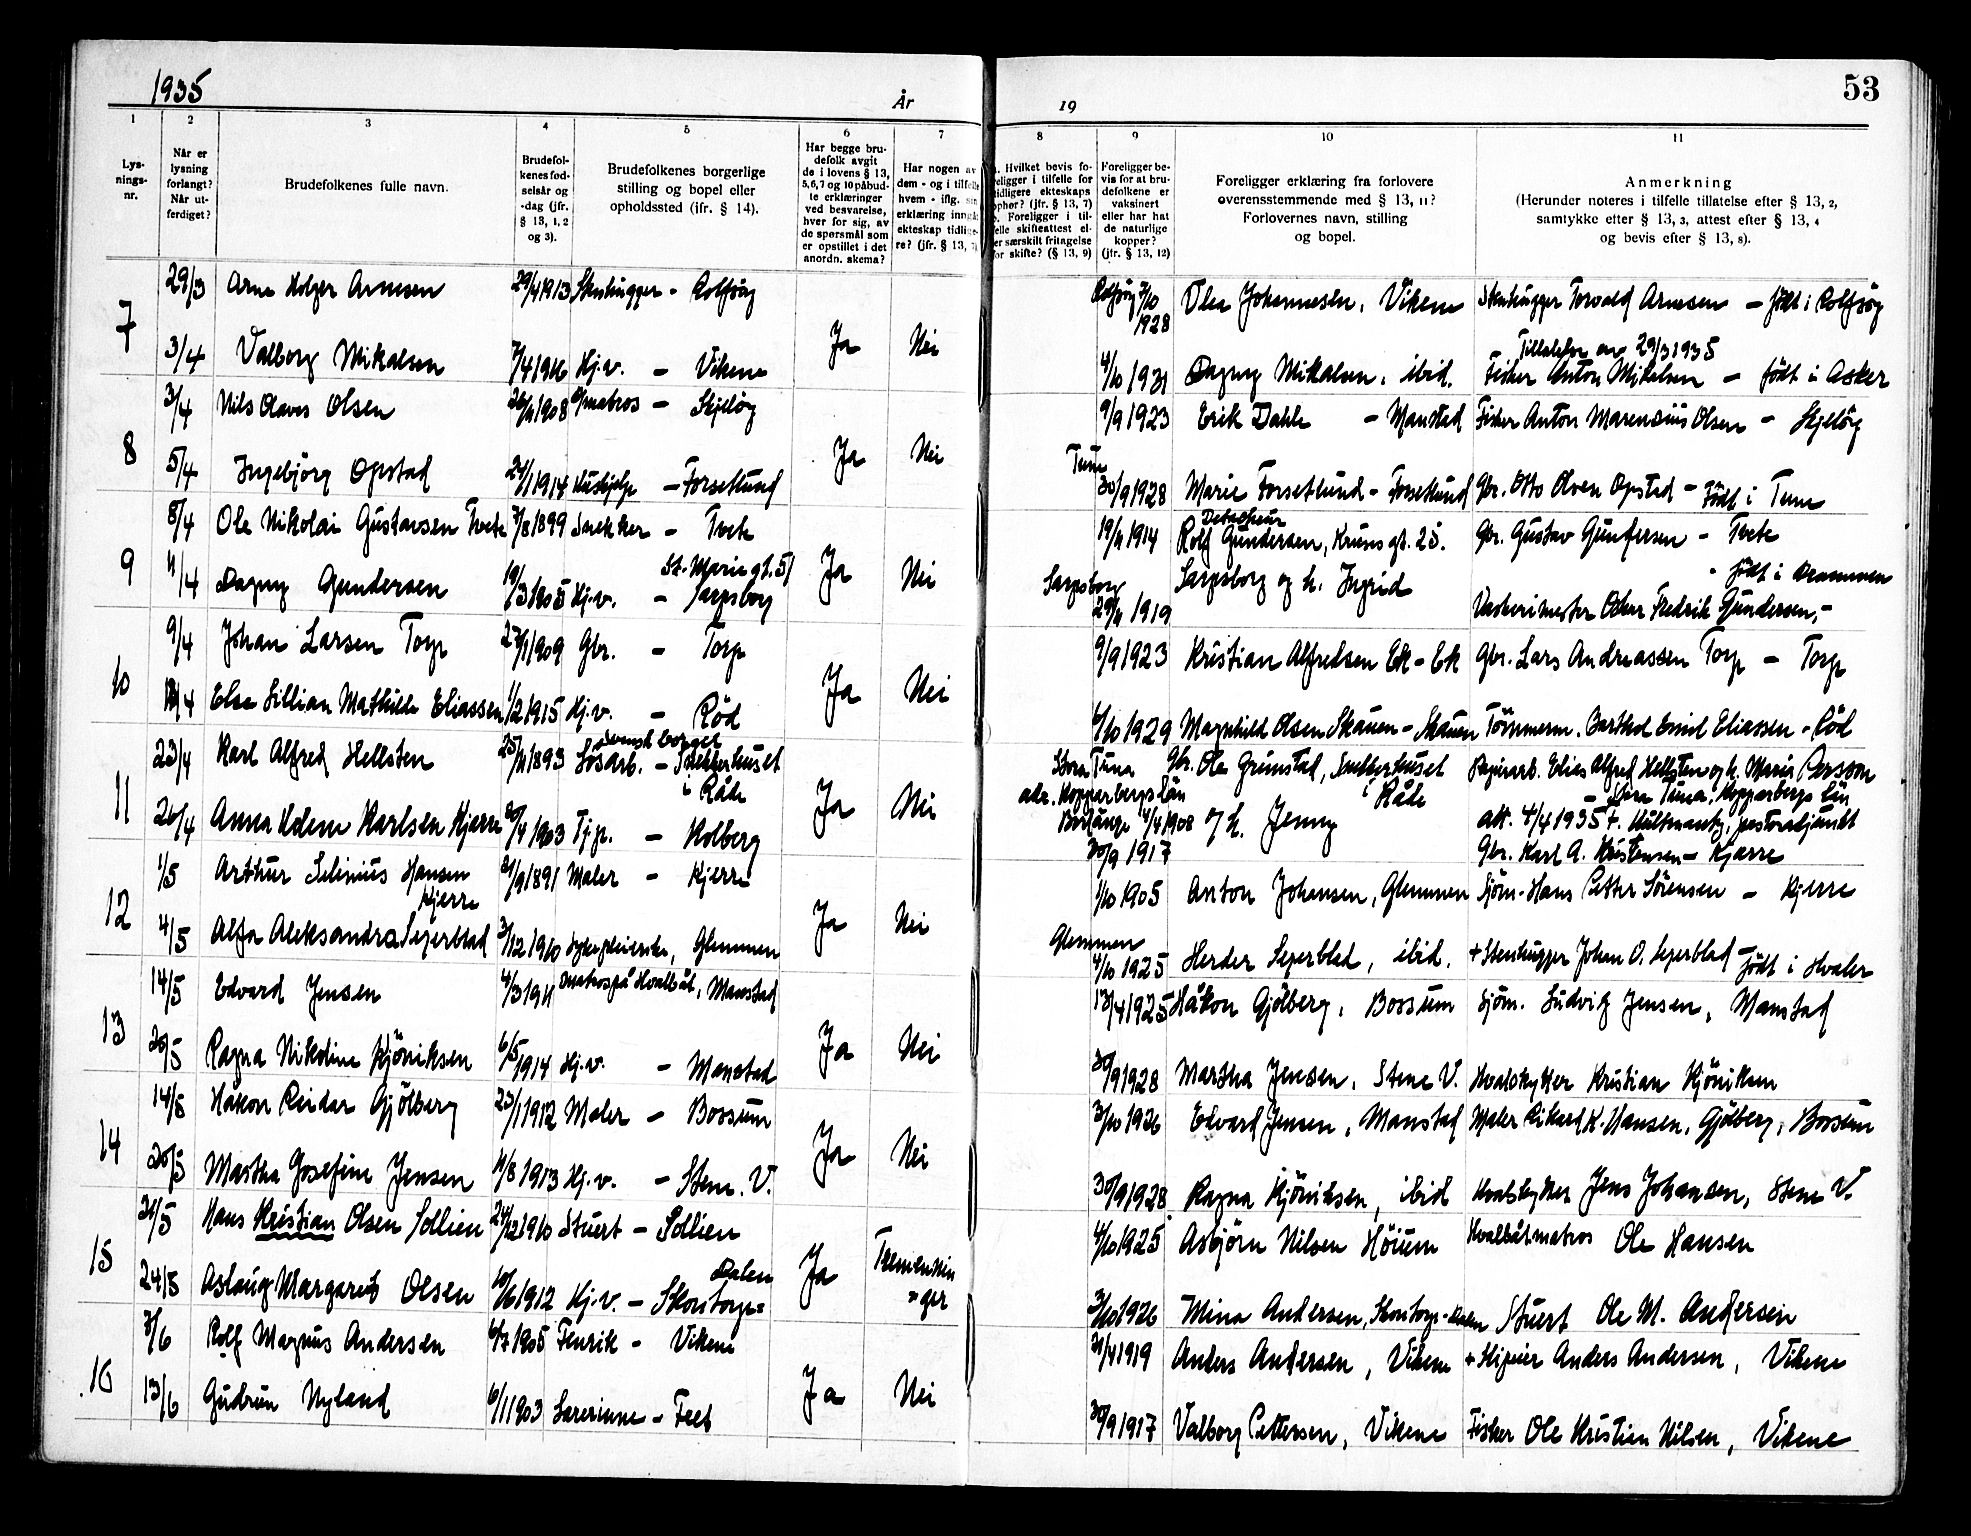 1935
År
19
53
1
2
3
4
5
6
7
8
9
10
11
Lys-
nings-
nr.
Når er
lysning
forlangt?
Når ut-
ferdiget?
Brudefolkenes fulle navn.
Brudefol-
kenes fød-
selsår og
-dag (jfr.
§ 13, 1, 2
og 3).
Brudefolkenes borgerlige
stilling og bopel eller
opholdssted (ifr. § 14).
Har begge bru-
defolk avgit
de i lovens § 13,
5, 6, 7 og 10 påbud-
te erklæringer
ved besvarelse,
hver for sig, av
de spørsmål som
er opstillet i det
anordn. skema?
Har nogen av
dem - og i tilfelle
hvem - iflg. sin
erklæring inngåt
ekteskap tidlige-
re? (jfr. § 13, 7)
Hvilket bevis fo-
religger i tilfelle for
tidligere ekteskaps
ophør? (jfr. § 13, 7)
Foreligger i til-
felle skifteattest el-
ler særskilt fritagelse
for skifte? (§ 13, 9)
Foreligger be-
vis for at bru-
defolkene er
vaksinert
eller har hat
de naturlige
kopper?
(jfr. § 13, 12)
Foreligger erklæring fra forlovere
overensstemmende med § 13, 11?
Forlovernes navn, stilling
og bopel.
Anmerkning
(Herunder noteres i tilfelle tillatelse efter § 13, 2,
samtykke efter § 13, 3, attest efter § 13, 4
og bevis efter § 13, 8).
7
29/3 Arne Holger Arnesen 29/4 1913 Stenhugger - Rolfsøy
Rolfsøy 7/10 1928 Johannesen, Vikene Stenhugger Torvald Arnesen - født i Rolfsøy
3/4 Valborg Mikalsen 7/4 1916 Hj.v. - Vikene Ja Nei
Tillatelse av 29/3 1935
4/10 1931 Dagny Mikalsen, ibid. Fisker Anton Mikalsen - født i Asker
8
3/4 Nils Olaves Olsen 1908 matros - Skjeløy
9/9 1923 Erik Dahle - Manstad Fisker Anton Marensius Olsen - Skjeløy
5/4 Ingebjörg Opstad 24/1 1914 Hushjelp - Forsetlund Ja Nei
Tune
30/9 1928 Marie Forsetlund - Forsetlund Gbr. Otto Olsen Opstad - Født i Tune
9
8/4 Ole Nikolai Gustavsen Tvete 7/8 1899 Snekker - Tvete
19/11 1914 Rolf Gundersen, Kruns gt. 25. Gbr. Gustav Gundersen - Tvete
11/4 Dagny Gundersen 19/3 1905 Hj.v. - St. Marie gt. 51 Sarpsborg Ja Nei
Sarpsborg 29/11 1919 Sarpsborg og h. Ingrid
- født i Drammen
Vaskerimester Oskar Fredrik Gundersen, -
10
9/4 Johan Larsen Torp 27/1 1909 Gbr. - Torp
9/9 1923 Kristian Alfredsen Ek - Ek Gbr. Lars Andreassen Torp - Torp
12/4 Else Lillian Mathilde Eliassen 1/2 1915 Hj.v. - Rød Ja Nei
4/10 1929 Magnhild Olsen Skauen - Skauen Tömmerm. Barthold Emil Eliassen - Rød
11
23/4 Karl Alfred Hellsten 25/11 1893 Løsarb. - Svensk borger i Råde
Stora Tuna Gbr. Ole Grimstad, i Råde Papirarb. Elias Alfred Hellsten og h. Maria Persson
Stora Tuna, Kopparbergs län
26/4 Anna Helene Karlsen Kjærre 20/4 1903 Tjp. - Kolberg Ja Nei
adr. Kopparbergs län Borlänge 14/4 1908 og h. Jenny
att. 4/4 1935 pastoradjunkt
30/9 1917 Gbr. Karl A. Kristensen - Kjærre
12
1/5 Arthur Selinius Hansen Kjerre 21/9 1891 Maler - Kjerre
1/10 1905 Anton Johansen, Glemmen Sjøm. Hans Petter Sörensen - Kjerre
4/5 Alfa Aleksandra Segerblad 3/12 1910 Sykepleierske, Glemmen Ja Nei
Glemmen 4/10 1925 Herder Segerblad, ibid. + Stenhugger Johan O. Segerblad - født i Hvaler
13
14/5 Edvard Jensen 4/3 1911 Matros på Hvalbåt, Manstad
13/4 1925 Håkon Gjölberg, Bossum Sjöm. Ludvig Jensen, Manstad
20/5 Ragna Nikoline Kjöniksen 6/5 1914 Hj.v. - Manstad Ja Nei
30/9 1928 Martha Jensen, Stene V. Hvalskytter Kristian Kjöniksen
14
14/5 Håkon Reidar Gjölberg 23/1 1912 Maler - Bossum
3/10 1926 Edvard Jensen, Manstad Maler Rikard K. Hansen, Gjölberg, Bossum
20/5 Martha Josefine Jensen 11/8 1913 Hj.v. - Stene. V. Ja Nei
30/9 1928 Ragna Kjöniksen, ibid Hvalskytter Jens Johansen, Stene V.
15
21/5 Hans Kristian Olsen Sollien 24/12 1910 Stuert - Sollien
4/10 1925 Asbjörn Nilsen Höium Hvalbåtmatros Ole Hansen
24/5 Aslaug Margaret Olsen 10/6 1912 Hj.v. - Skovtorp= Dalen Ja Tremenninger
3/10 1926 Mina Andersen, Skovtorp-Dalen Stuert Ole M. Andersen
16
7/6 Rolf Magnus Andersen 6/7 1905 Fenrik - Vikene
21/4 1919 Anders Andersen, Vikene + Skipseier Anders Andersen, Vikene
13/6 Gudrun Nyland 6/11 1903 Lærerinne - Ja Nei
30/9 1917 Valborg Pettersen, Vikene Fisker Ole Kristian Nilsen, Vikene